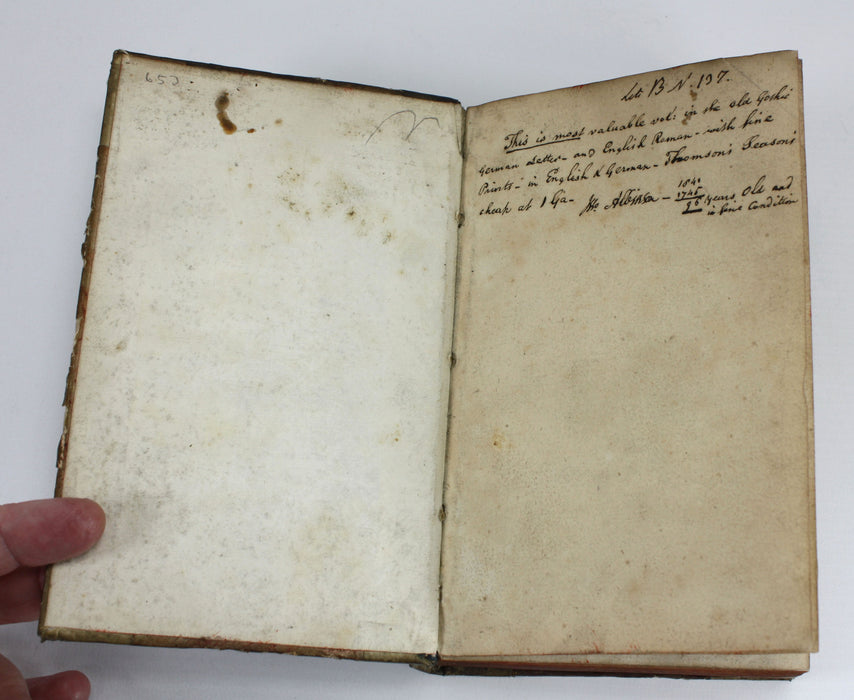 653
Lots B N. 137.
This is most valuable vol: in the old Gothic
German Letter - and English Roman - with fine
Prints - in English & German - Thomson's Seasons
cheap at 1 Ga - - 1841
1745
96 years Old and
in fine Condition